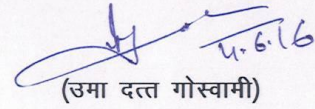 4.6.16
(उमा दत्त गोस्वामी)